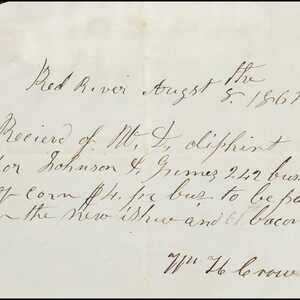 Red River Augst the
8. 186
Recievd of W. D. oliphint
for Johnson & Grimes 242 bus
of corn $4. pr bus. to be pa
in the new ishue and bacon
Wm H Crow